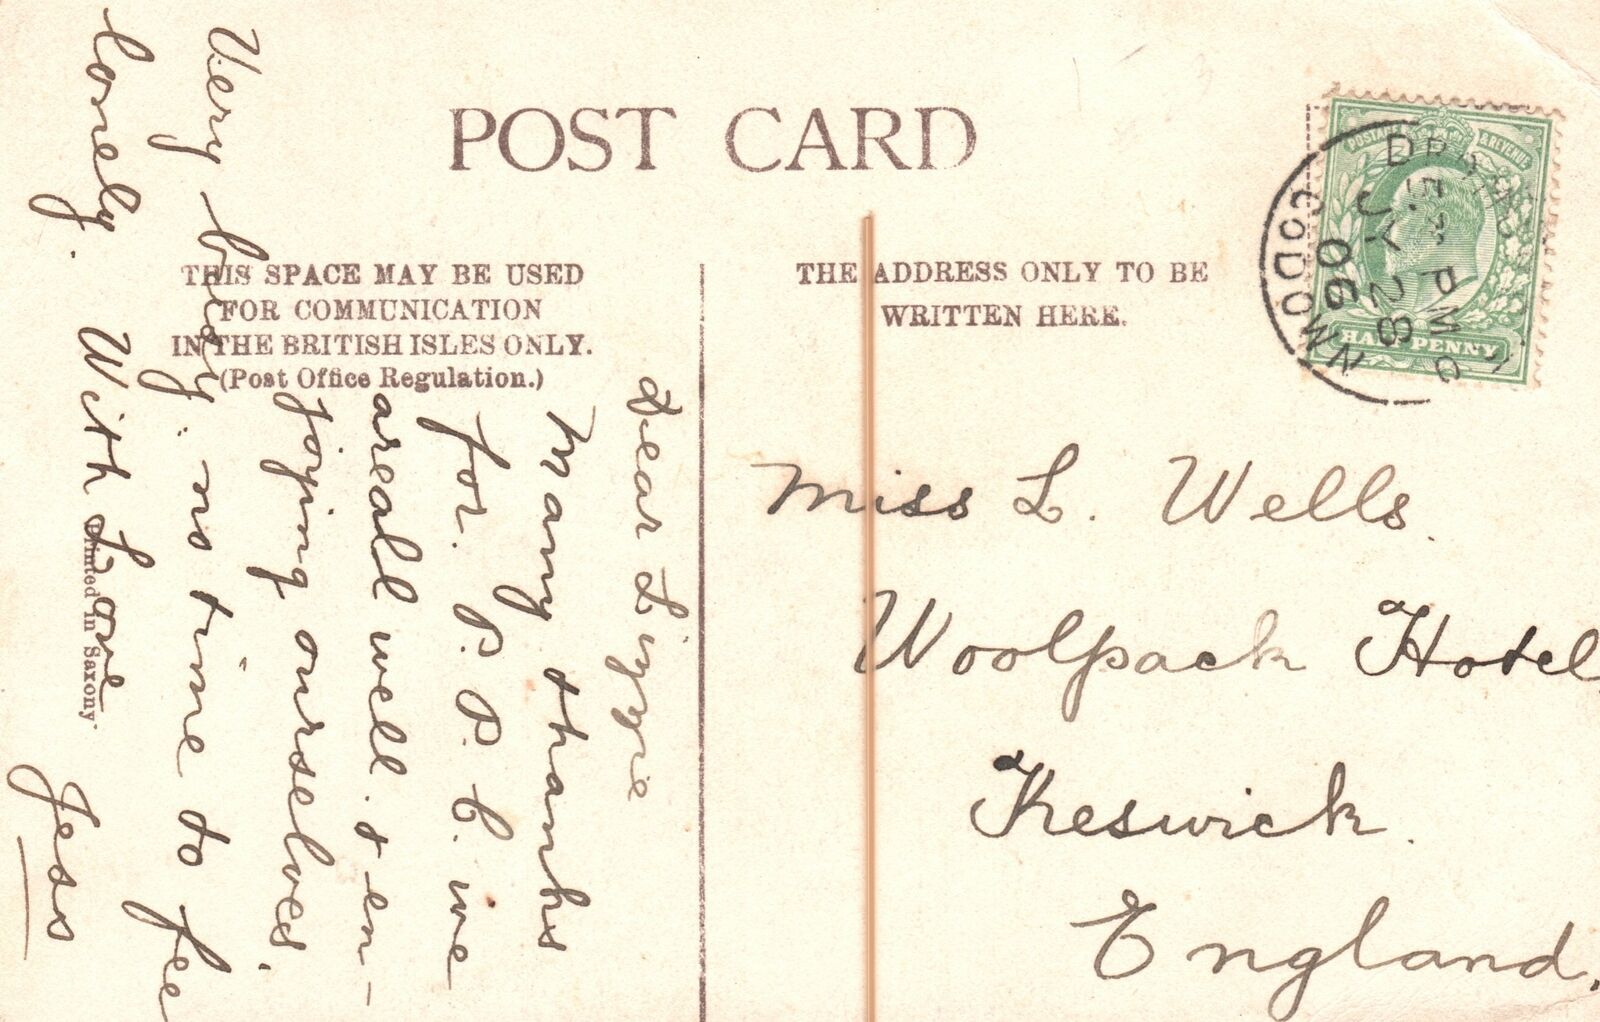 POST CARD
THIS SPACE MAY BE USED
FOR COMMUNICATION
IN THE BRITISH ISLES ONLY.
(Post Office Regulation.)
THE ADDRESS ONLY TO BE
WRITTEN HERE.
Dear Lizzie
Many thanks
for. P.P.C. we
are all well. & en-
joying ourselves.
Very busy. no time to fee
lonely. With Love
Jess
Printed in Saxony
Miss L. Wells.
Woolpack Hotel,
Keswick.
England.
POSTAGE & REVENUE
HALFPENNY
PM
JY 28
06